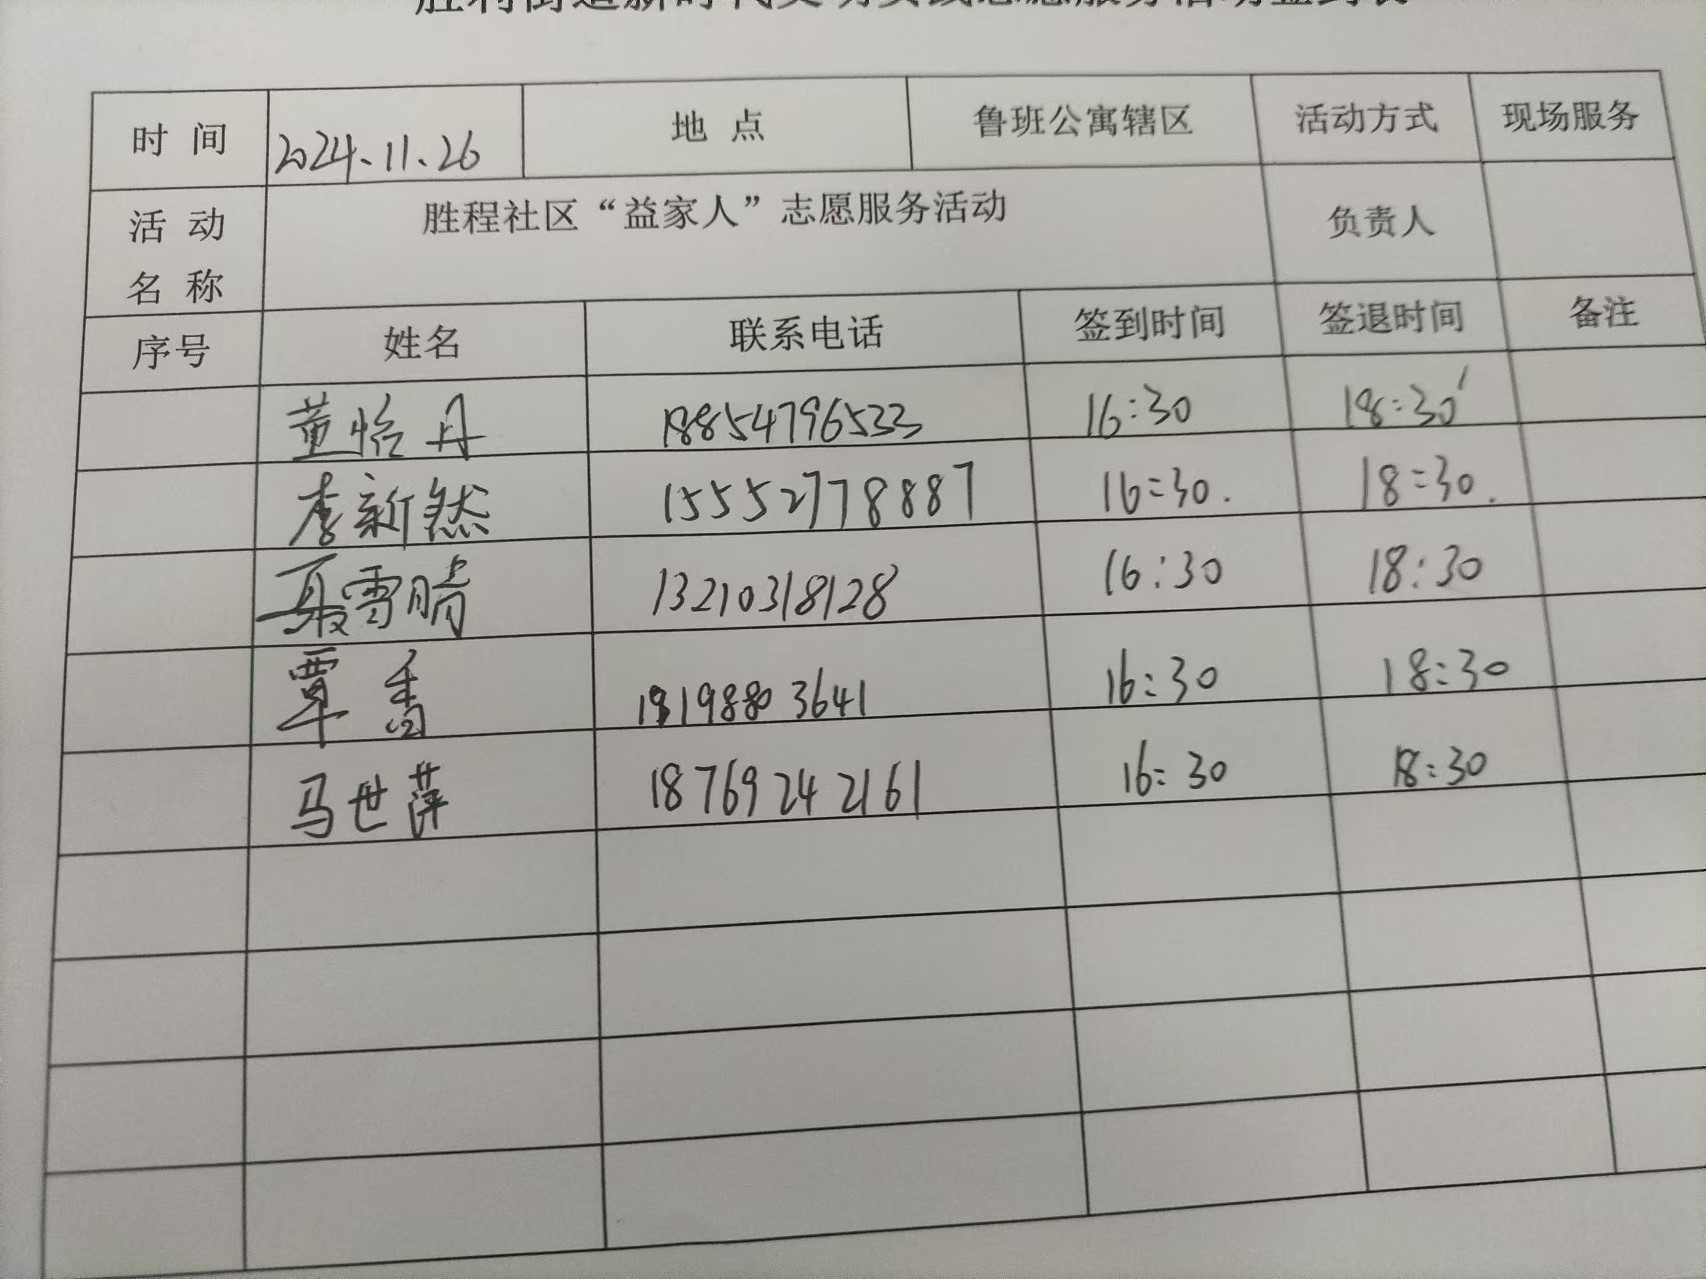 胜利街道新时代文明实践志愿服务活动签到表
时 间 2024.11.26 地 点 鲁班公寓辖区 活动方式 现场服务
活 动 名 称 胜程社区“益家人”志愿服务活动 负责人
序号 姓名 联系电话 签到时间 签退时间 备注
董怡丹 18854796533 16:30 18:30
李新然 15552778887 16:30. 18:30.
聂雪晴 13210318128 16:30 18:30
覃香 16:30 18:30
马世萍 18769242161 16:30 18:30